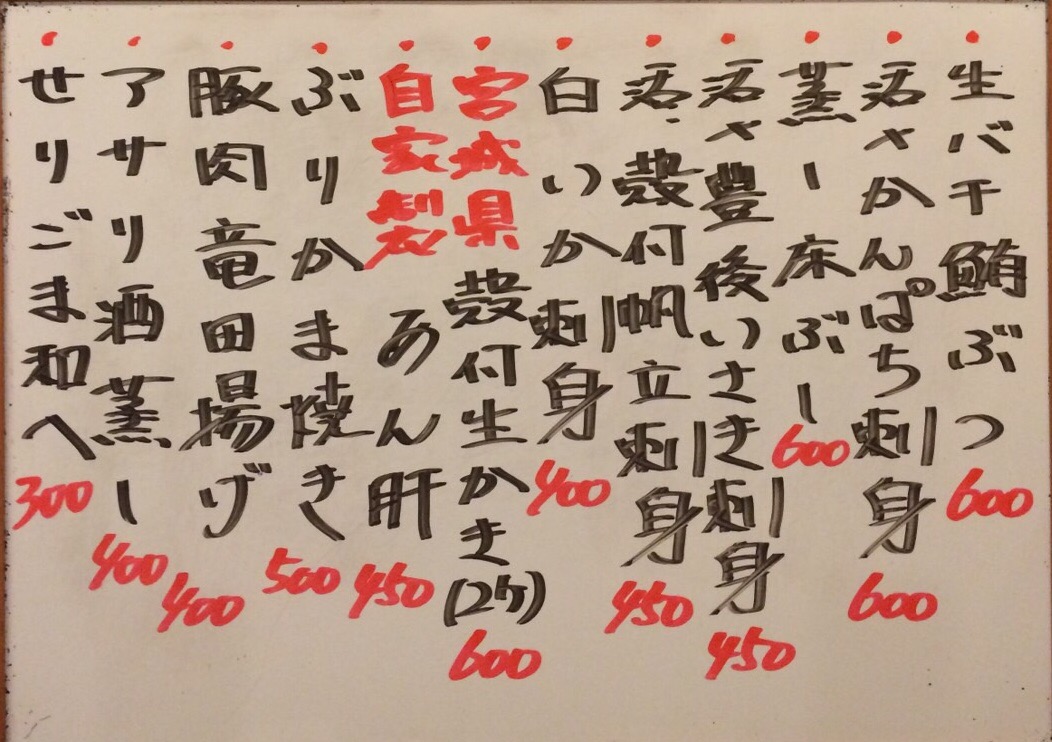 ・生バチ鮪ぶつ 600
・活〆かんぱち刺身 600
・蒸し床ぶし 600
・活〆豊後いさき刺身 450
・活・殻付帆立刺身 450
・白いか刺身 400
・宮城県 殻付生かき(2ケ) 600
・自家製 あん肝 450
・ぶりかま焼き 500
・豚肉竜田揚げ 400
・アサリ酒蒸し 400
・せりごま和へ 300